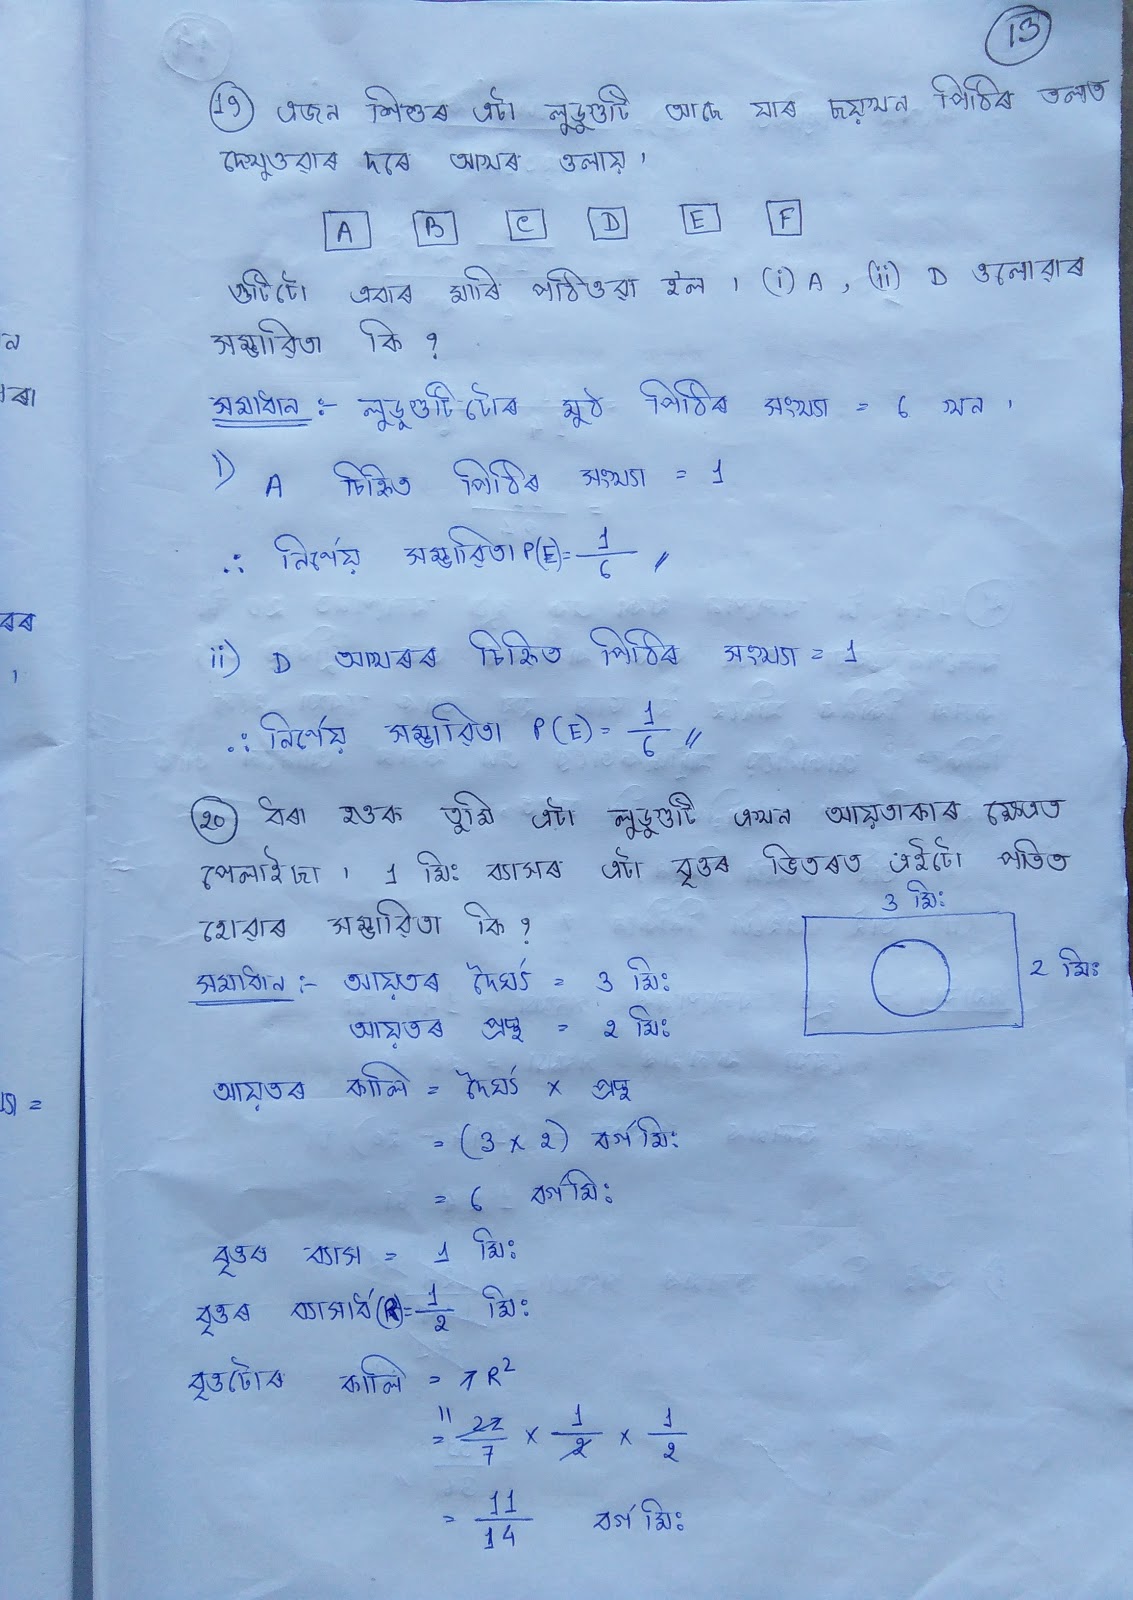 13
19) এজন শিশুৰ এটা লুডুগুটি আছে যাৰ ছয়খন পিঠিৰ তলত
দেখুওৱাৰ দৰে আখৰ ওলায়।
A B C D E F
গুটিটো এবাৰ মাৰি পঠিওৱা হল। (i) A, (ii) D ওলোৱাৰ
সম্ভাৱিতা কি?
সমাধান :- লুডুগুটিটোৰ মুঠ পিঠিৰ সংখ্যা = 6 খন।
i) A চিহ্নিত পিঠিৰ সংখ্যা = 1
∴ নিৰ্ণেয় সম্ভাৱিতা P(E) = 1/6 //
ii) D আখৰৰ চিহ্নিত পিঠিৰ সংখ্যা = 1
∴ নিৰ্ণেয় সম্ভাৱিতা P(E) = 1/6 //
20) ধৰা হওক তুমি এটা লুডুগুটি এখন আয়তাকাৰ ক্ষেত্ৰত
পেলাইছা। 1 মিঃ ব্যাসৰ এটা বৃত্তৰ ভিতৰত এইটো পতিত
হোৱাৰ সম্ভাৱিতা কি?
3 মিঃ
2 মিঃ
সমাধান :- আয়তৰ দৈৰ্ঘ্য = 3 মিঃ
আয়তৰ প্ৰস্থ = 2 মিঃ
আয়তৰ কালি = দৈৰ্ঘ্য × প্ৰস্থ
= (3 × 2) বৰ্গ মিঃ
= 6 বৰ্গমিঃ
বৃত্তৰ ব্যাস = 1 মিঃ
বৃত্তৰ ব্যাসাৰ্ধ (R) = 1/2 মিঃ
বৃত্তটোৰ কালি = πR²
= 22/7 × 1/2 × 1/2
11
= 11/14 বৰ্গ মিঃ
ন
ৰৰ
=